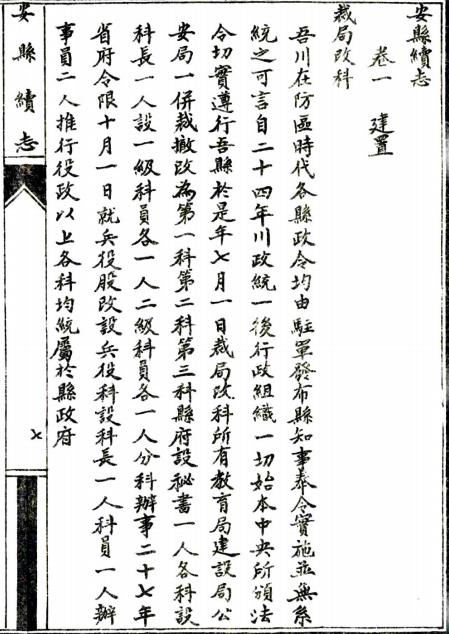 安縣續志
卷一　建置
裁局改科
吾川在防區時代各縣政令均由駐軍發布縣知事奉令實施並無系
統之可言自二十四年川政統一後行政組織一切始本中央所頒法
令切實遵行吾縣於是年七月一日裁局改科所有教育局建設局公
安局一併裁撤改為第一科第二科第三科縣府設秘書一人各科設
科長一人設一級科員各一人二級科員各一人分科辦事二十七年
省府令限十月一日就兵役股改設兵役科設科長一人科員一人辦
事員二人推行役政以上各科均統屬於縣政府
安縣續志
七